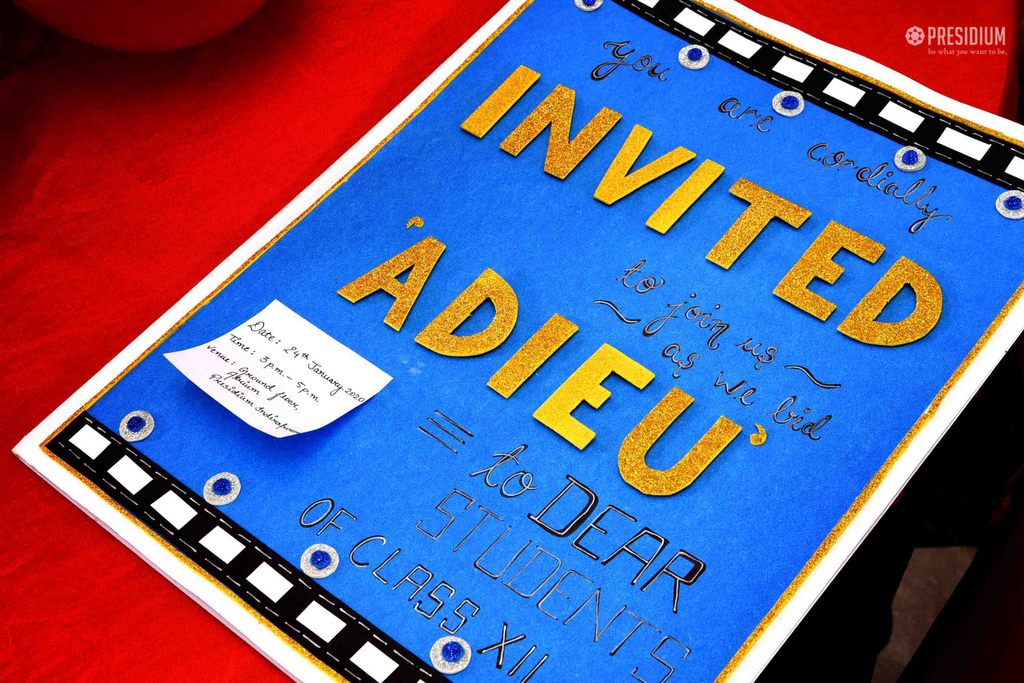 PRESIDIUM
be what you want to be.
you are cordially
INVITED
to join us
as we bid
'ADIEU'
to DEAR
STUDENTS
OF CLASS XII
Date: 24th January 2020
Time: 3 p.m. - 5 p.m.
Venue: Ground floor,
Atrium
Presidium Indirapuram